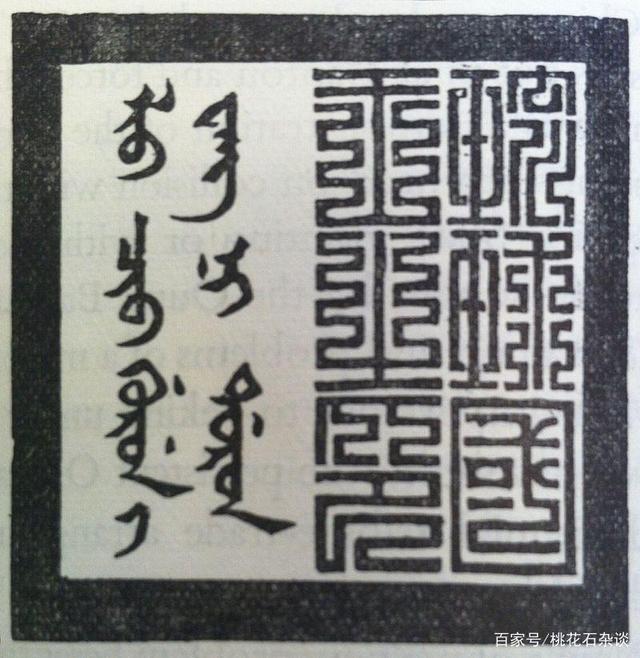 琉球國
王之印
ᠯᡳᠣ ᠴᡳᠣ ᡤᡠᡵᡠᠨ ᡳ
ᠸᠠᠩ ᠨᡳ ᡩᠣᡵᠣᠨ
百家号/桃花石杂谈